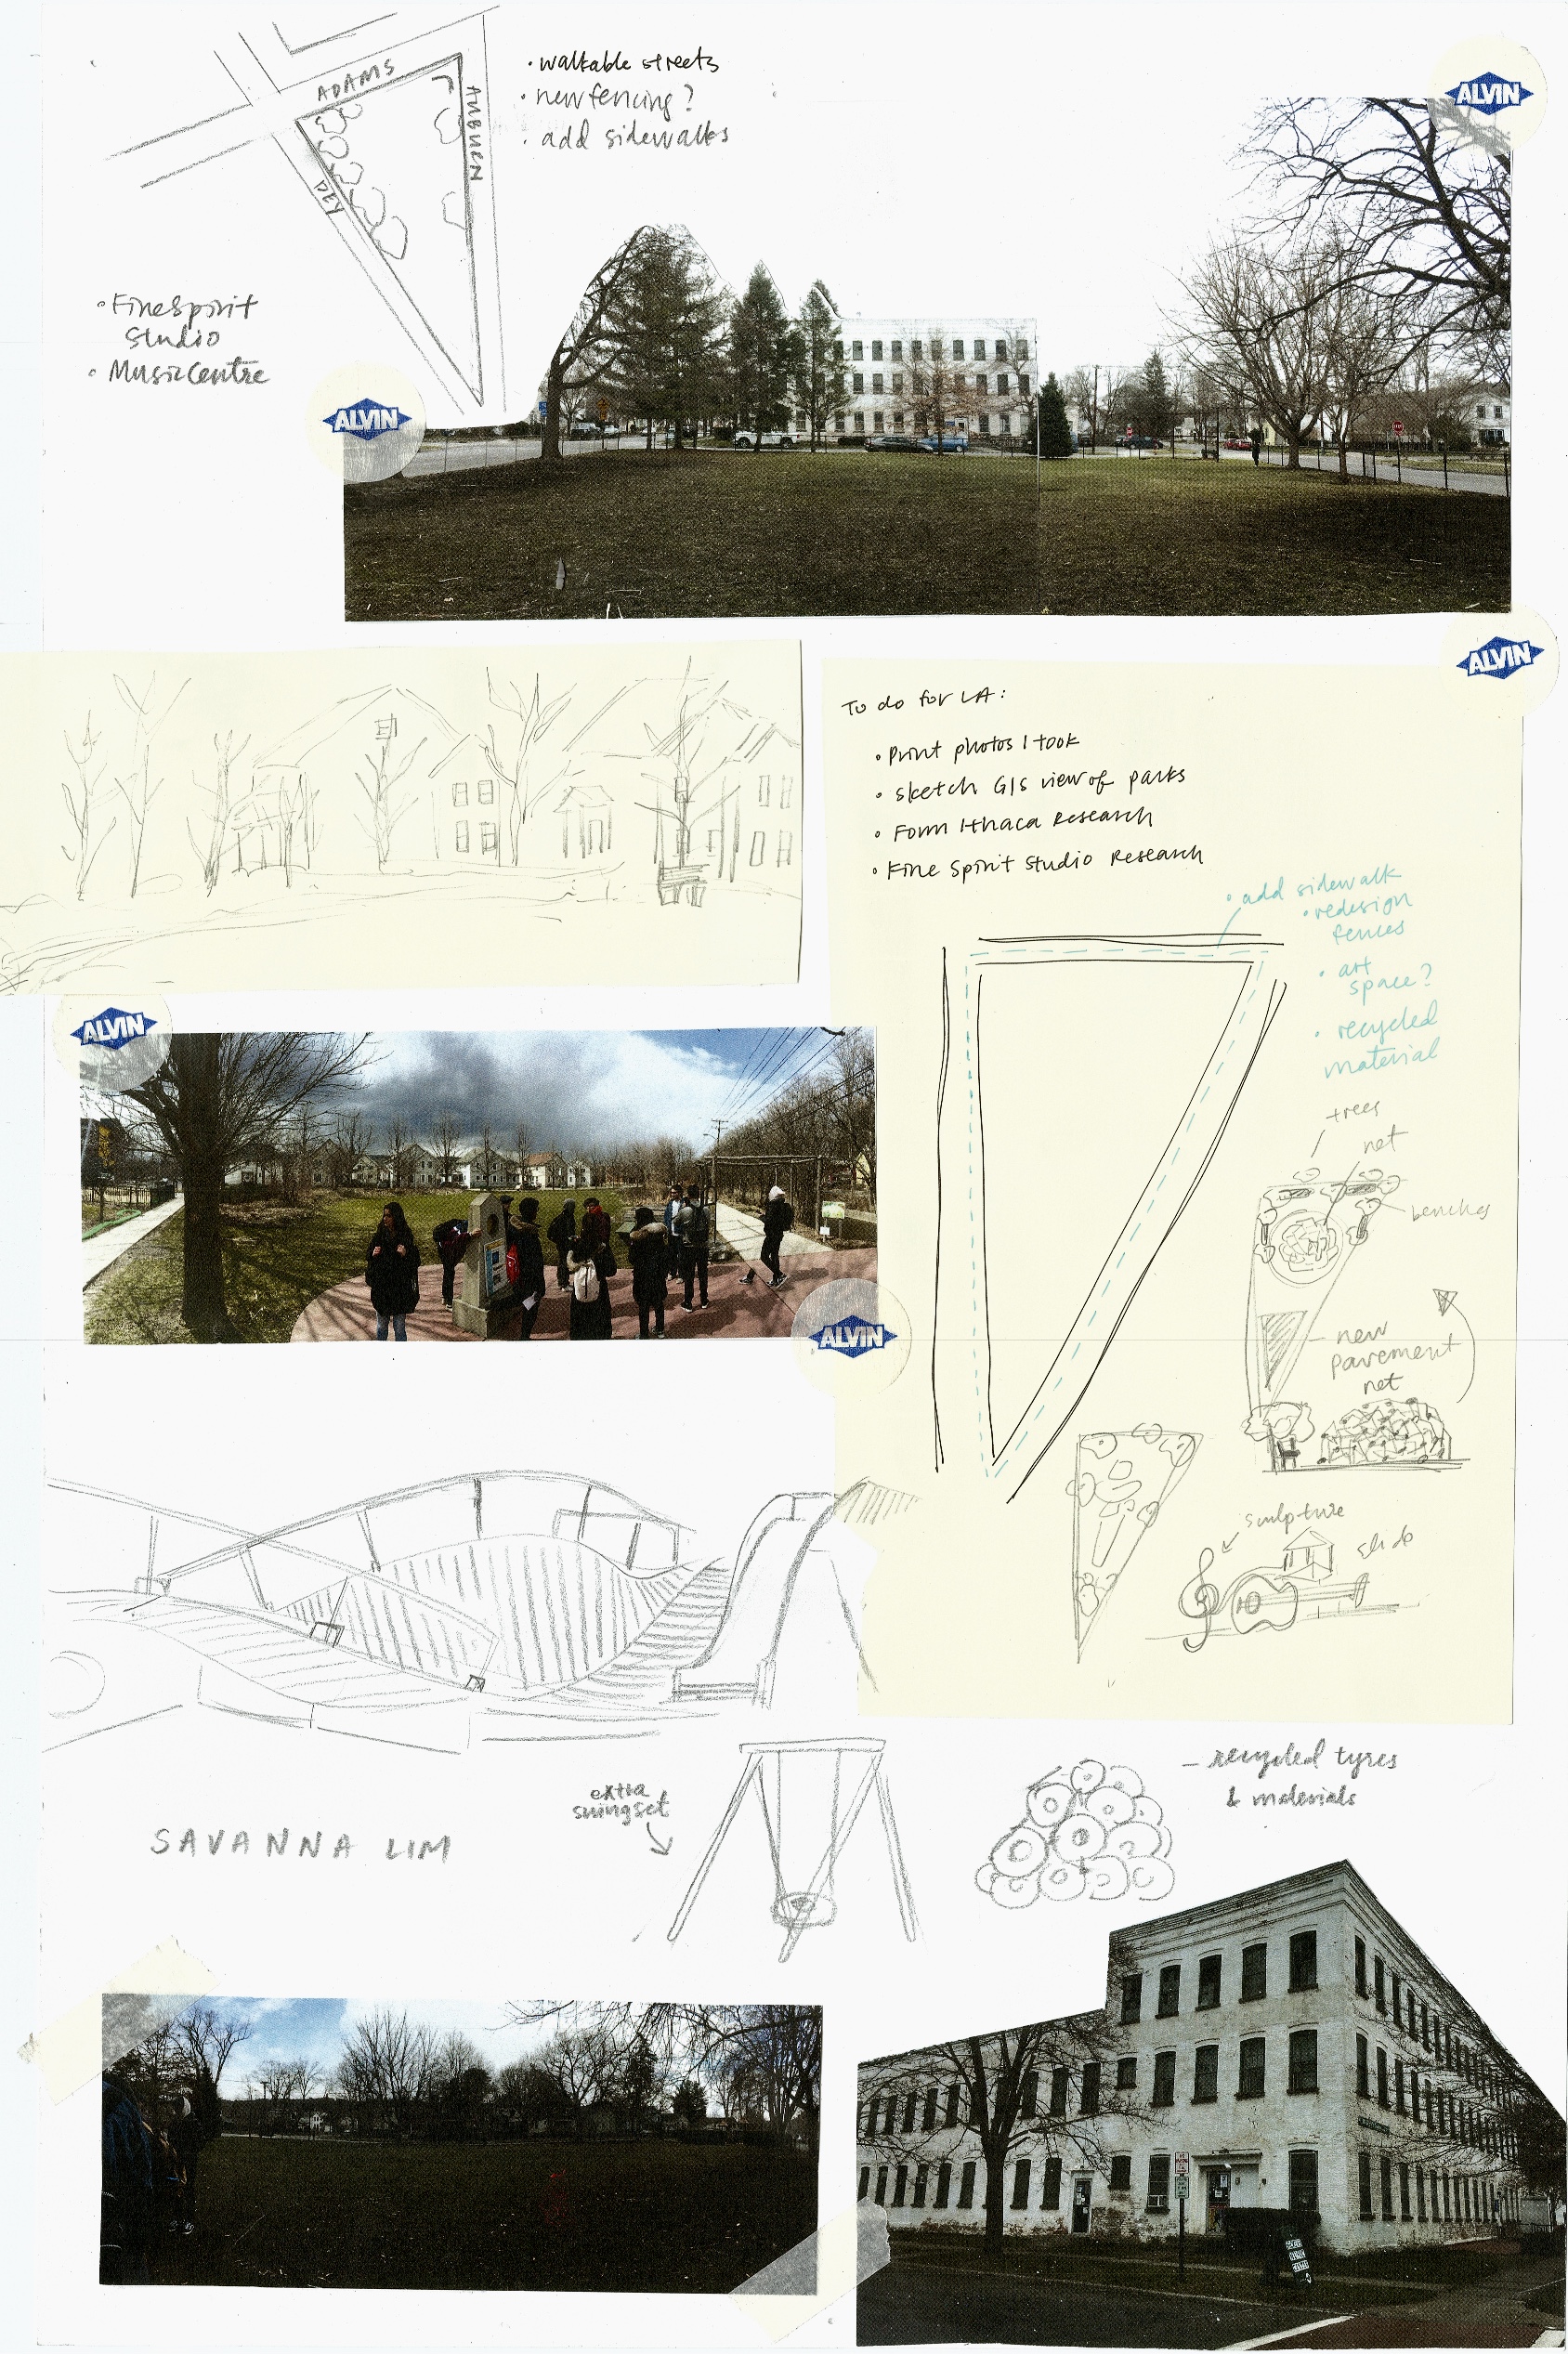 ADAMS
AUBURN
DEY
• walkable streets
• new fencing?
• add sidewalks
ALVIN
• FineSpirit
Studio
• MusicCentre
ALVIN
ALVIN
To do for LA:
• Print photos I took
• Sketch GIS view of parks
• Form Ithaca Research
• Fine Spirit Studio Research
• add sidewalk
• redesign
fences
• art
space?
• recycled
material
trees
net
benches
ALVIN
ALVIN
– new
pavement
net
sculpture
slide
extra
swingset
– recycled tyres
& materials
SAVANNA LIM